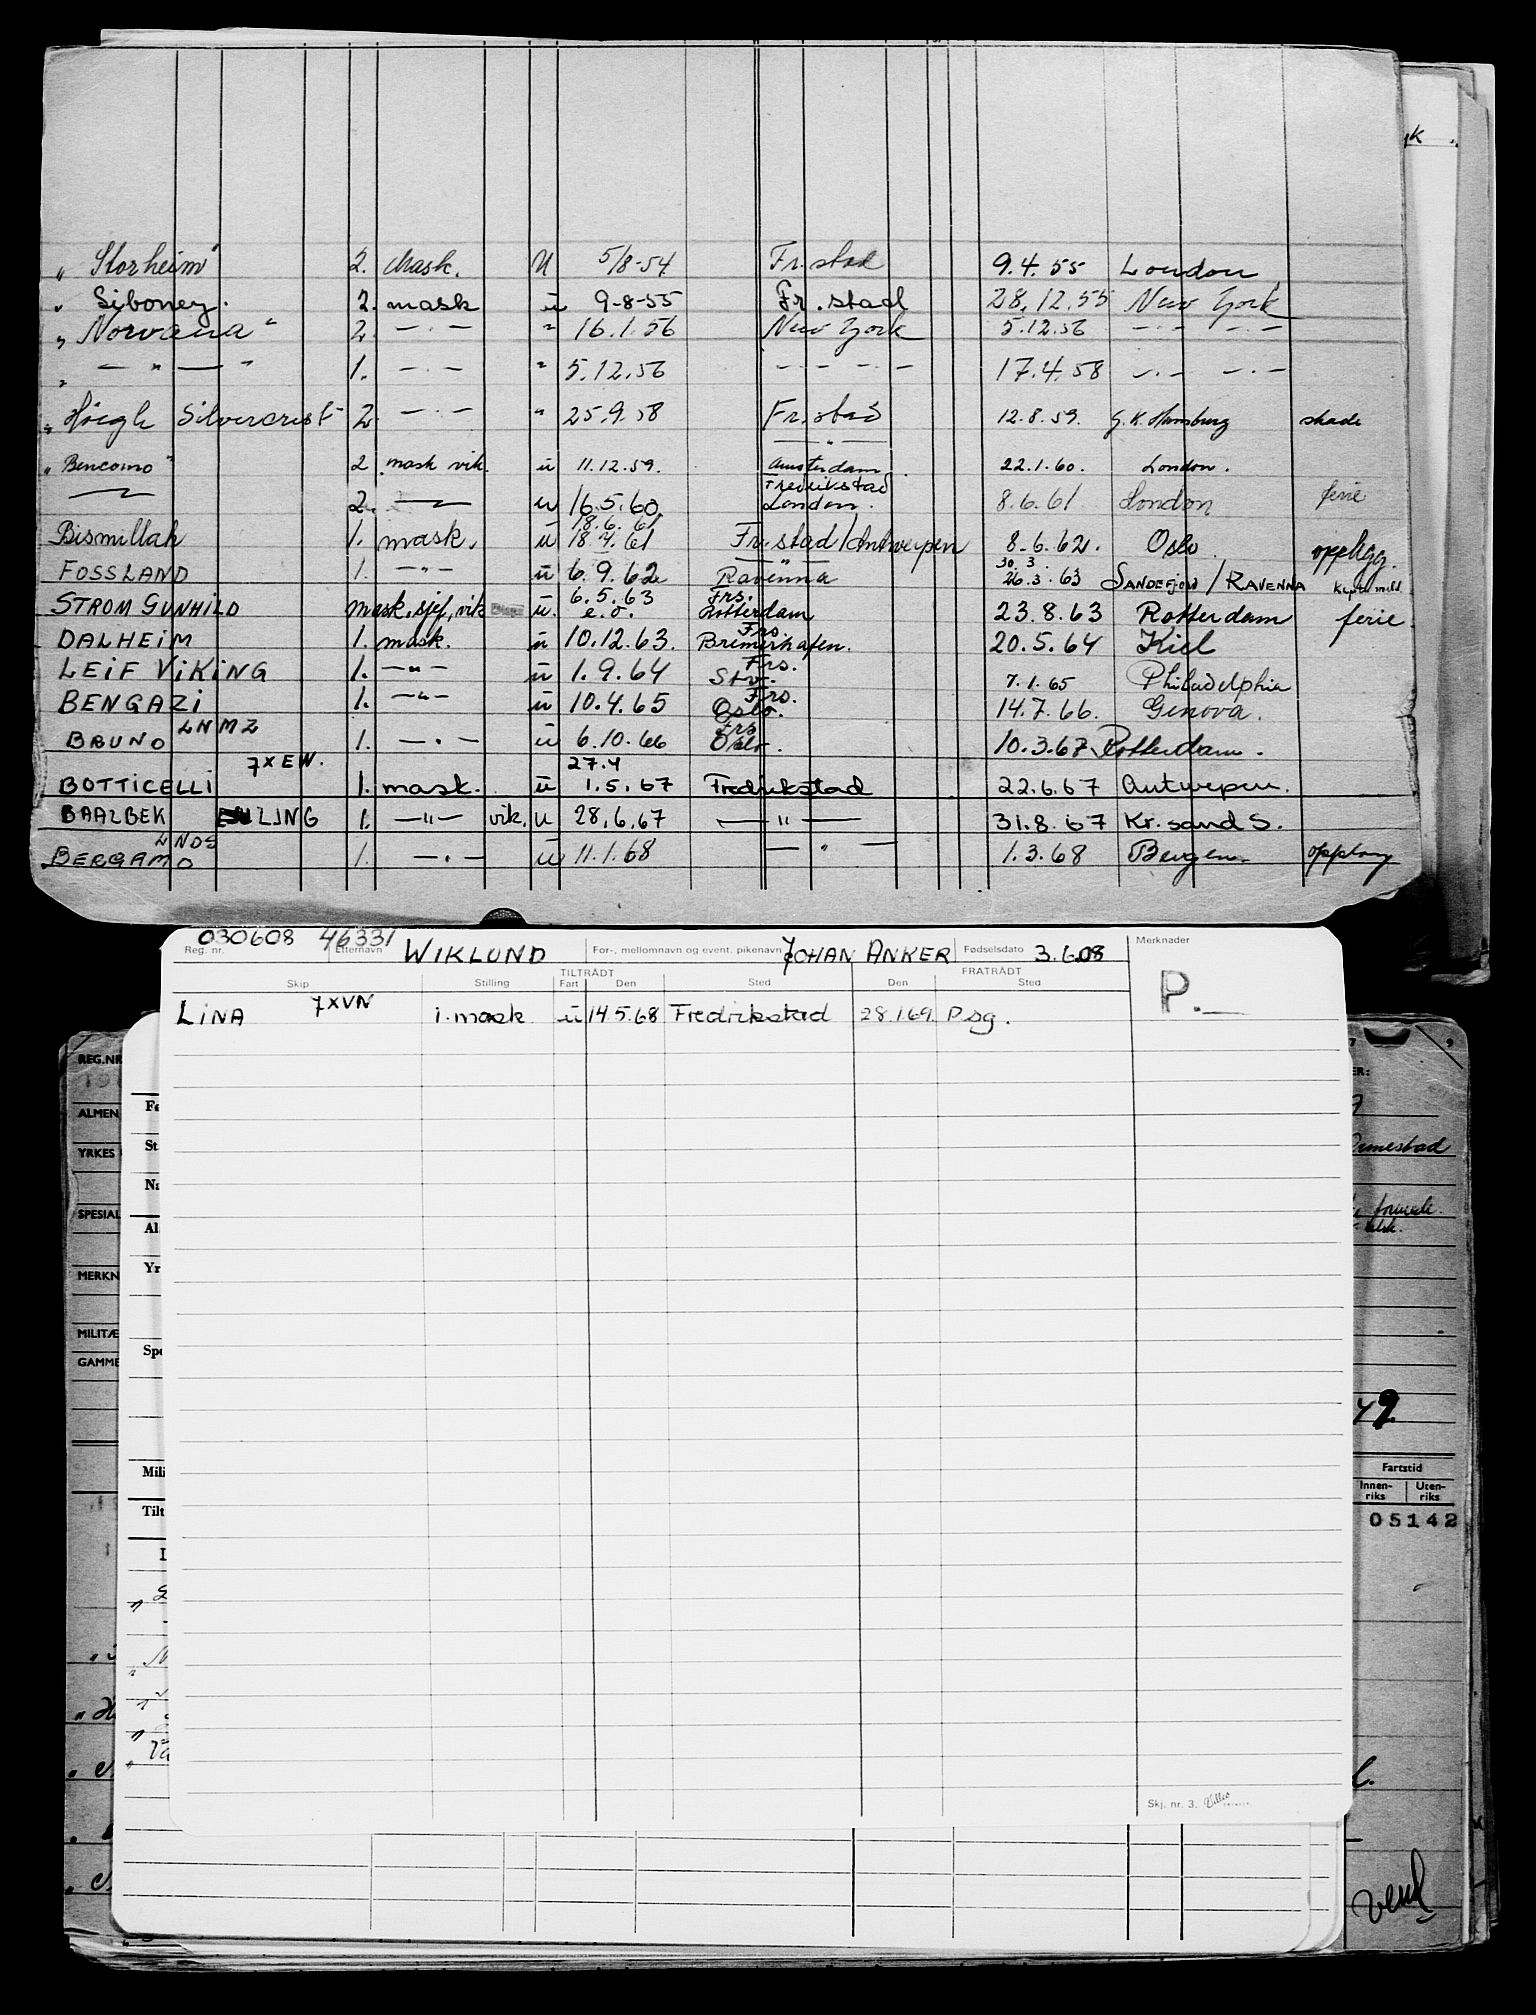 " Storheim" 2. Mask. U 5/8-54 Fr.stad 9.4.55 London
" Siboney. 2. mask u 9-8-55 Fr.stad 28.12.55 New York
" Norvana" 2. — · — " 16.1.56 New York 5.12.56 — · — — · —
" — " — " 1. — · — " 5.12.56 — · — — · — 17.4.58 — · — — · —
" Höegh Silvercrest" 2. — · — " 25.9.58 Fr.stad 12.8.59. G.K. Hamburg skade
— " —
" Bencomo" 2 mask vik. u 11.12.59. Amsterdam 22.1.60. London.
Fredrikstad
— " — 2. — " — u 16.5.60 London. 8.6.61 London ferie
18.6.61
Bismillah 1. mask. u 18.7.61 Fr.stad/Antwerpen 8.6.62. Oslo. opplegg.
— " — 30.3.
FOSSLAND 1. — " — u 6.9.62 Ravenna 26.3.63 SANDEFJORD / RAVENNA
6.5.63 Frs.
STROM GUNHILD mask,sjef,vik u. e.o. Rotterdam 23.8.63 Rotterdam ferie
Frs.
DALHEIM 1. mask. u 10.12.63. Bremerhafen. 20.5.64 Kiel
Frs.
LEIF VIKING 1. — " — u 1.9.64 Stv. 7.1.65 Philadelphia
Frs.
BENGAZI 1. — " — u 10.4.65 Oslo. 14.7.66. Genova.
LNMZ Frs
BRUNO 1. — · — u 6.10.66 Oslo. 10.3.67 Rotterdam.
7XEW. 27.4
BOTTICELLI 1. mask. u 1.5.67 Fredrikstad 22.6.67 Antwerpen.
BAALBEK LJNG 1. — " — vik. u 28.6.67 — " — 31.8.67 Kr.sand S.
LNDS
BERGAMO 1. — · — u 11.1.68 — " — 1.3.68 Bergen. opplag
030608 46331
Reg. nr. Etternavn WIKLUND For-, mellomnavn og event. pikenavn JOHAN ANKER Fødselsdato 3.6.08 Merknader
Skip Stilling TILTRÅDT Fart Den Sted FRATRÅDT Den Sted
P.—
LINA 7XVN 1. mask u 14.5.68 Fredrikstad 28.1.69. Psg.
Skj. nr. 3.
REG.NR
ALMEN
YRKES
SPESIAL
MERKN
MILITÆ
GAMME
Fe
St
Na
Al
Yr
Spe
Mili
Tilt
ER:
49
Fartstid
Innen-
riks
Uten-
riks
05142
vend